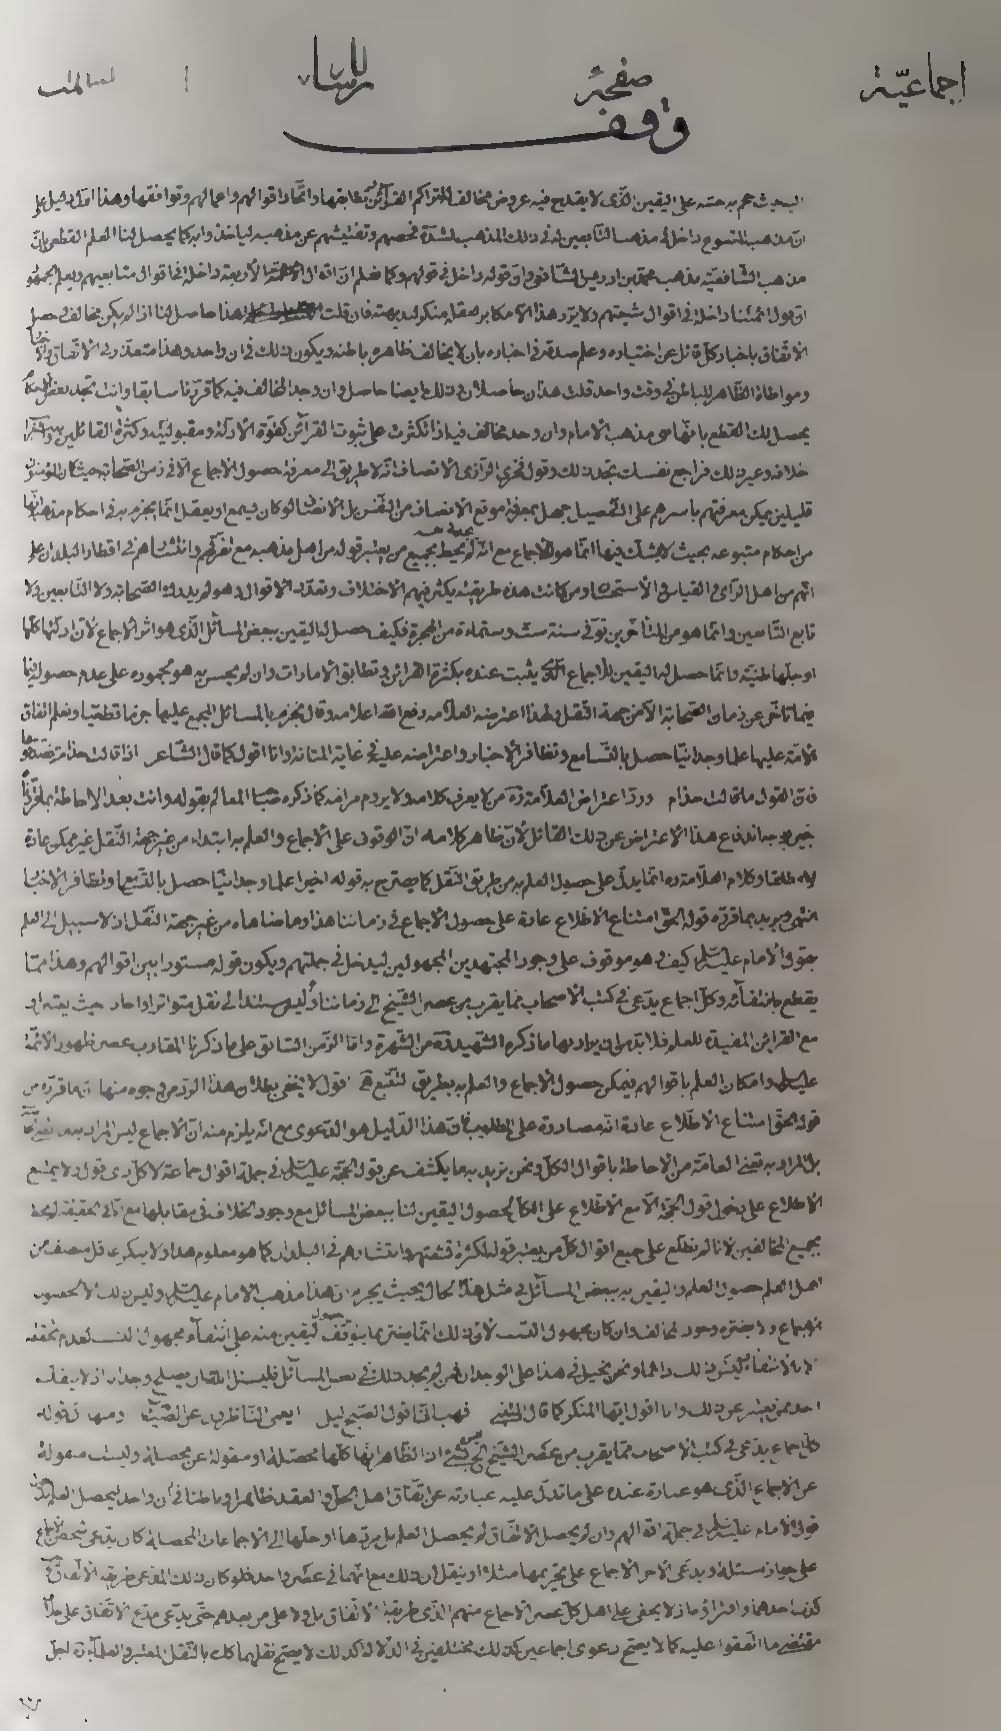 اجماعيّة
صفحة
وقف
على اليقين الذى لا يقدح فيه عروض مخالف لتراكم القرآئن وتطابقها واتّحاد اقوالهم واعمالهم وتوافقها وهذا اول دليل على
داخل فى مذهب التّابعين له فى ذلك المذهب لشدّة فحصهم وتفتيشهم عن مذهب لياخذوا به كما يحصل لنا العلم القطعى بانّ
مذهب الشّافعيّة مذهب محمد بن ادريس الشافعى وانّ قوله داخل فى قولهم وكما نعلم ان اقوال الأئمّة الأربعة داخلة فى اقوال متابعيهم ويعلم الجمهور
انّ قول ائمّتنا داخلة فى اقوال شيعتهم ولا يردّ هذا الا مكابر لعقله منكر لبديهته فان قلت هذا حاصل لنا اذا لم يكن مخالف فى حصل
الاتّفاق باخبار كلّ قائل عن اختياره وعلم صدقه فى اخباره بان لا يخالف ظاهره باطنه ويكون ذلك فى ان واحد وهذا متعذّر فى الاتّفاق
ومواطاة الظّاهر للباطن فى وقت واحد قلت هذان حاصلان فى ذلك وايضا حاصل وان وجد المخالف فيه كما قرّرنا سابقا وانت تجد بعض
يحصل لك القطع بانّها من مذهب الامام وان وجد مخالف فيها اذا تكثرت على ثبوت القرآئن كقوة الأدلة ومقبوليته وكثرة القائلين
خلافه وغير ذلك فراجع نفسك تجد ذلك وقول فخرى الرّازى الانصاف انّه لا طريق الى معرفة حصول الاجماع الّا فى زمن الصّحابة حيث كان المؤمنون
قليلين يمكن معرفتهم باسرهم على التّفصيل جهل بمعرفة موقع الانصاف من النّفس بل الانصاف لو كان يسمع او يعقل انّما يجزم به فى احكام مذهبه
من احكام متبوعه بحيث لا يشكّ فيها انّما هو الاجماع مع انّه لم يحط بجميع من يعتبر قوله من اهل مذهبه مع تفرّقهم وانتشارهم فى اقطار البلدان على
انّهم من اهل الرّأى والقياس والاستحسان ومن كانت هذه طريقته يكثر فيهم الاختلاف وتعدّد الاقوال وهو لم يدرك الصّحابة ولا التّابعين ولا
تابع التّابعين وانّما هو من المتأخّرين توفّى سنة ست وستمائة من الهجرة فكيف حصل له اليقين ببعض المسائل الّذى هو اثر الاجماع لانّ ادلّتها كلّها
او جلّها ظنيّة وانّما حصل له اليقين للاجماع الّذى يثبت عنده بكثرة القرائن وتطابق الأمارات وان لم يحسن به هو جموده على عدم حصوله فيما
فيما تاخّر عن زمان الصّحابة الّا من جهة النّقل ولهذا اعترضه العلّامه رفع الله اعلامه وقال نجزم بالمسائل المجمع عليها جزما قطعيا ونعلم اتفاق
الامّة عليها علما وجدانيّا حصل بالتّسامع وتظافر الأخبار واعتراضه عليه فى غاية المتانة وانا اقول كما قال الشّاعر اذا قالت حذام فصدّقوها
فانّ القول ما قالت حذام وردّ اعتراض العلّامة ره من لا يعرف كلامه ولا يروم مرامه كما ذكره صاحب المعالم بقوله وانت بعد الاحاطة بما قرّرناه
خبير بوجه اندفاع هذا الاعتراض عن ذلك القائل لأنّ ظاهر كلامه انّ الوقوف على الاجماع والعلم به ابتداء من غير جهة النّقل غير ممكن عادة
لا مطلقا وكلام العلّامة ره انّما يدلّ على حصول العلم به من طريق النّقل كما يصرّح به قوله اخيرا علما وجدانيّا حصل بالتّسامع وتظافر الأخبار
انتهى ويريد بما قرّره قوله الحقّ امتناع الاطّلاع عادة على حصول الاجماع فى زماننا هذا وما ضاهاه من غير جهة النّقل اذ لا سبيل الى العلم
بقول الامام عليه السّلم كيف وهو موقوف على وجود المجتهدين المجهولين ليدخل فى جملتهم ويكون قوله مستورا بين اقوالهم وهذا ممّا
يقطع بانتفائه وكلّ اجماع يدّعى فى كتب الأصحاب ممّا يقرب من عصر الشّيخ الى زماننا وليس مستندا الى نقل متواتر او احاد حيث يعتبر او
مع القرائن المفيدة للعلم فلا بدّ من ان يراد بها ما ذكره الشّهيد ره من الشّهرة وامّا الزّمن السّابق على ما ذكرنا المقارب عصر ظهور الائمّة
عليهم السّلم وامكان العلم باقوالهم فيمكن حصول الاجماع والعلم به بطريق التّتبّع اقول لا يخفى بطلان هذا الرّد من وجوه منها انّ ما قرّره من
قوله الحقّ امتناع الاطّلاع عادة انّه مصادرة على المطلوب فانّ هذا الدّليل هو الدّعوى مع انّه يلزم منه انّ الاجماع ليس المراد به ما
بل المراد به العامّة من الاحاطة باقوال الكلّ ونحن نريد به ما يكشف عن قول الحجّة عليه السّلم فى جملة اقوال جماعة لا كلّ ذى قول ولا يمتنع
الاطلاع على دخول قول الحجّة الّا مع الاطّلاع على الكلّ لحصول اليقين لنا ببعض المسائل مع وجود الخلاف فى مقابلها مع انّا فى الحقيقة لم نحط
بجميع المخالفين لانا لم نطّلع على جميع اقوال كلّ من يعتبر قوله لكثرة تشتّتهم وانتشارهم فى البلدان كما هو معلوم هذا ولا ينكر عاقل منصف من
اهل العلم حصول العلم واليقين به ببعض المسائل فى مثل هذا الحال بحيث يجزم انّ هذا مذهب الامام عليه السّلم وليس ذلك الّا لحصول
الاجماع ولا يضرّه وجود المخالف وان كان مجهول النّسب لانّ ذلك انّما يضرّ بما يتوقّف حصول اليقين منه على انتفاء مجهول النسب لعدم تحققه
ونحن نحيل فى هذا على الوجدان فمن لم يجد ذلك فى بعض المسائل
احد ممن يعتبر عن ذلك وانا اقول ايها المنكر كما قال فهب انّى اقول الصّبح ليل ايعمى النّاظرون عن الضّياء ومنها انّ قوله
كلّ اجماع يدّعى فى كتب الأصحاب ممّا يقرب من عصر الشّيخ انّ الظّاهر انّها كلّها محصّلة او منقولة عن محصلة وليست منقولة
عن الاجماع الّذى هو عبارة عنده على ما تدلّ عليه عبارته عن اتّفاق اهل الحلّ والعقد ظاهرا وباطنا فى ان واحد ليحصل العلم
قول الامام عليه السّلم فى جملة اقوالهم وان لم يحصل الاتّفاق لم يحصل العلم بل مرّدها او جلّها الى الاجماعات المحصلة كان يدّعى شخص
على جواز مسئلة ويدّعى الاخر الاجماع على تحريمها مثلا او ينقلان ذلك مع انّهما فى عصر واحد فلو كان ذلك المدّعى طريقه الاتّفاق
كذب احدهما وافتراؤه ما لا يخفى على اهل كلّ عصر الاجماع منهم الذى طريقة الاتّفاق بل ولا على من بعدهم حتّى يدّعى مدّع الاتّفاق على
مقتضى ما اتّفقوا عليه كما لا يصح دعوى اجماعين كذلك مختلفين فى الدّلالة كذلك لا يصحّ نقلهما كذلك بالنّقل المعتبر والعلماء اجلّ